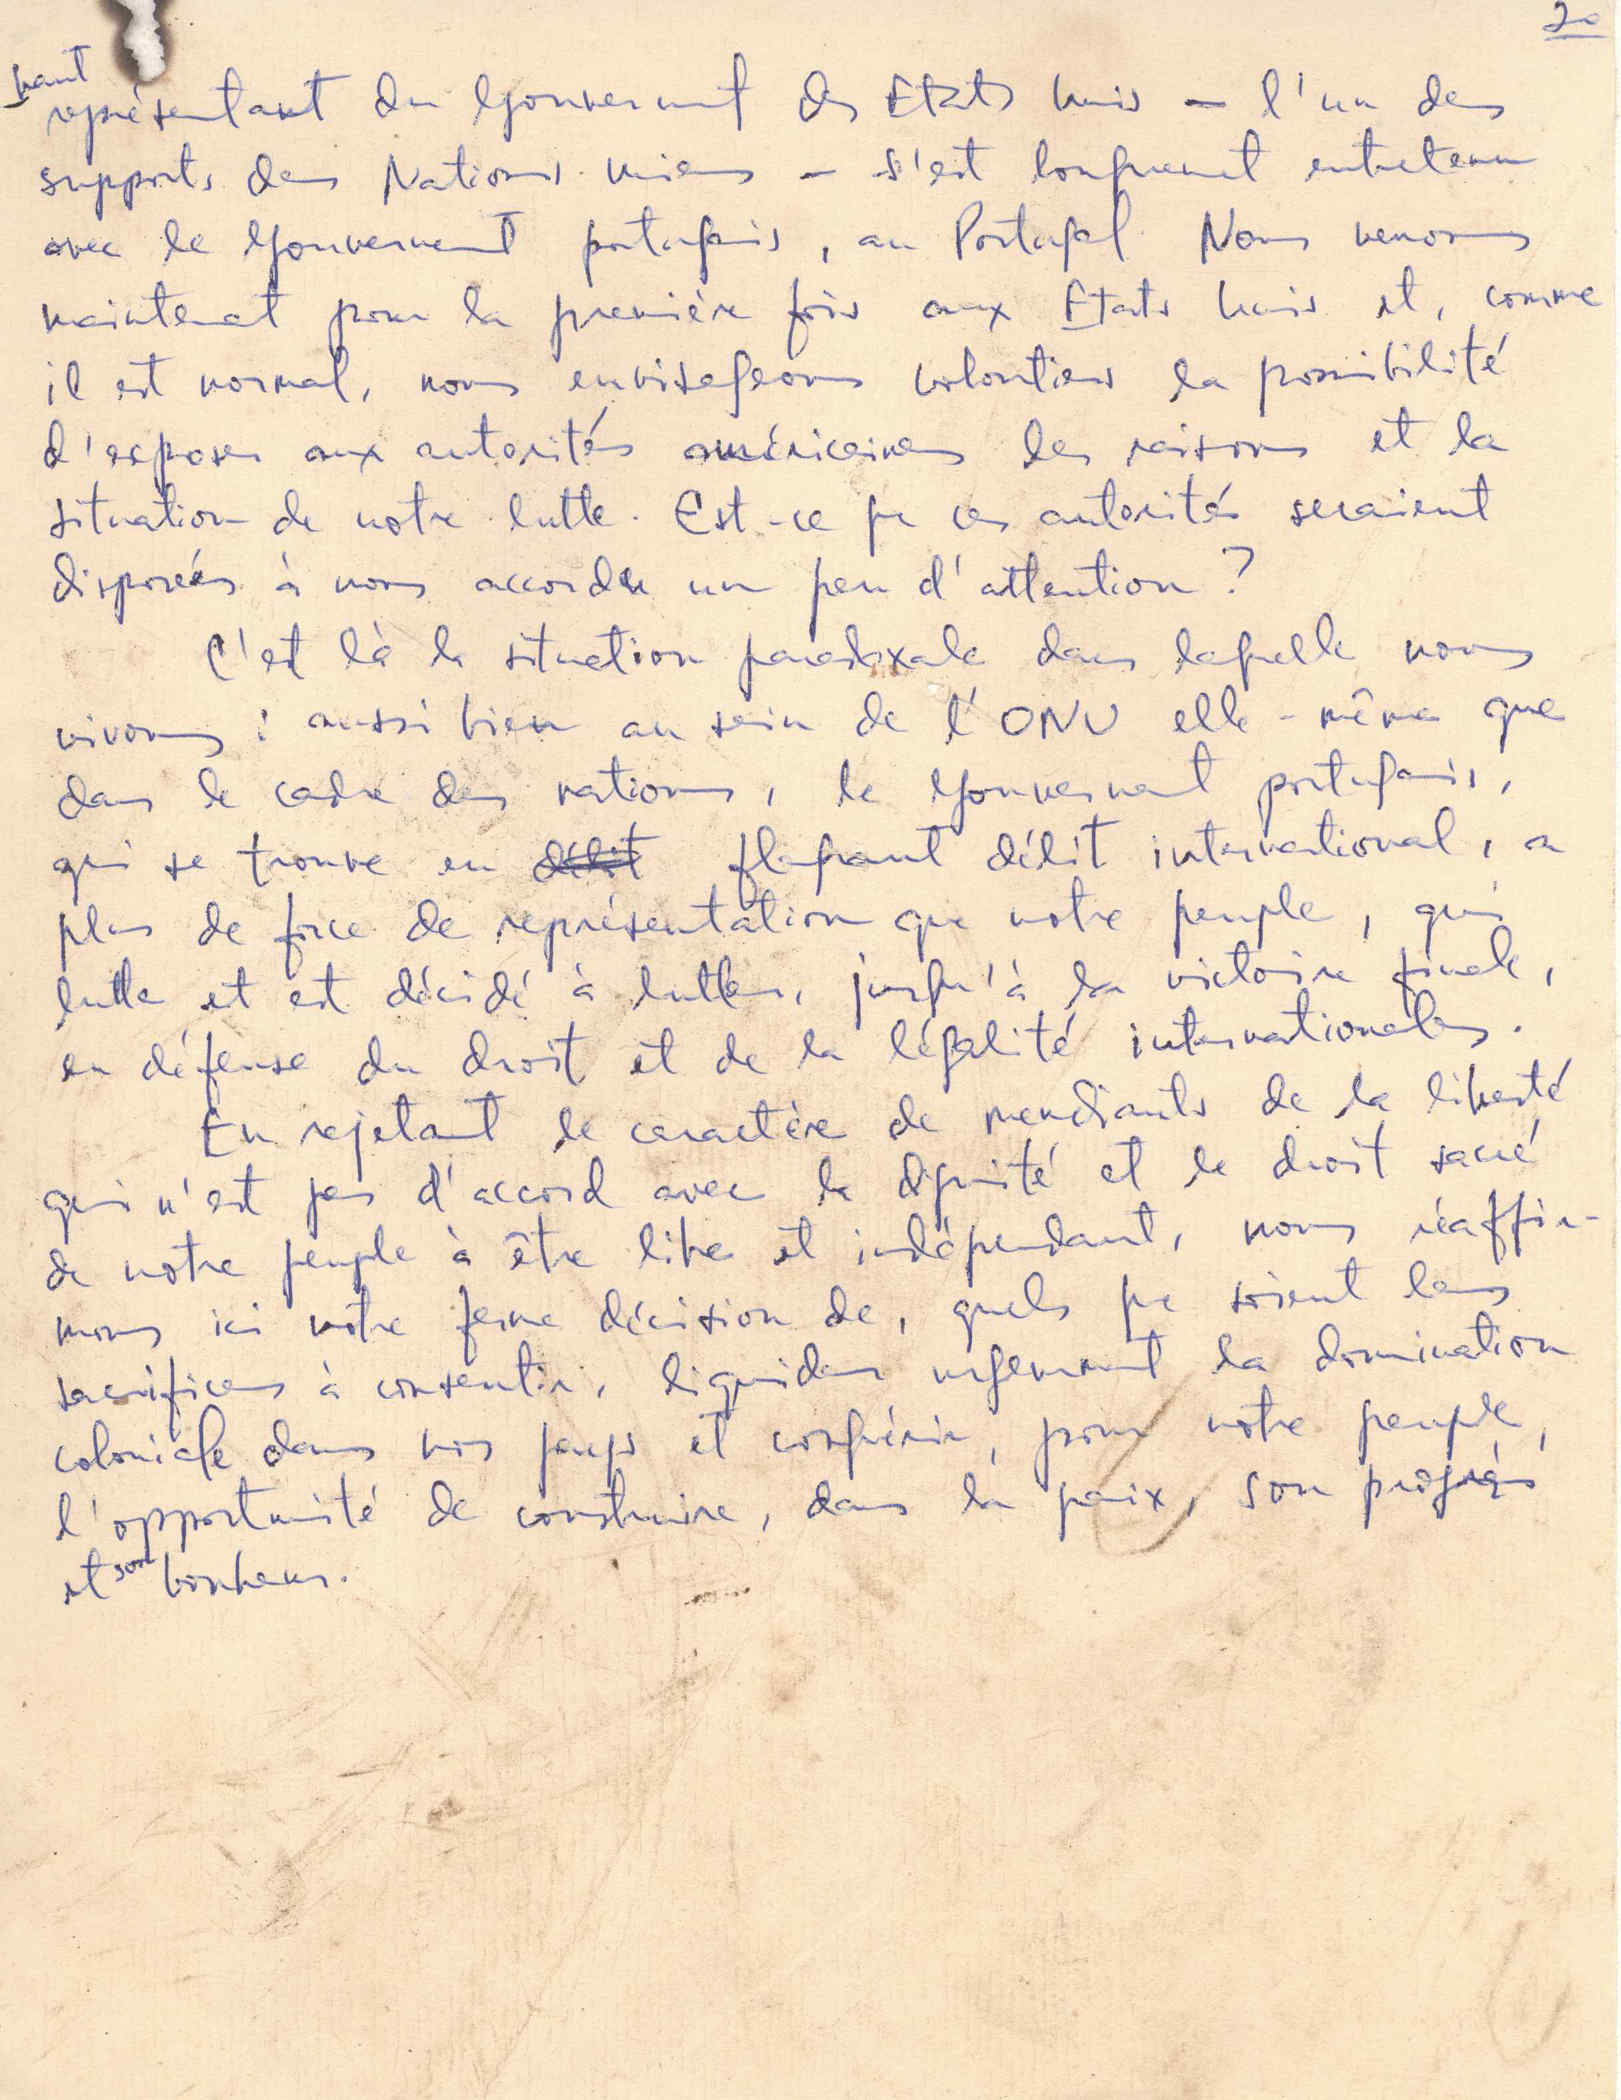 20
haut
représentant du Gouvernement des Etats Unis – l'un des
supports des Nations Unies – s'est longuement entretenu
avec le Gouvernement portugais, au Portugal. Nous venons
maintenant pour la première fois aux Etats Unis et, comme
il est normal, nous envisageons volontiers la possibilité
d'exposer aux autorités américaines les raisons et la
situation de notre lutte. Est-ce que ces autorités seraient
disposées à nous accorder un peu d'attention?
C'est là la situation paradoxale dans laquelle nous
vivons: aussi bien au sein de l'ONU elle-même que
dans le cadre des nations, le Gouvernement portugais,
qui se trouve en délit flagrant délit international, a
plus de force de représentation que notre peuple, qui
lutte et est décidé à lutter, jusqu'à la victoire finale,
en défense du droit et de la légalité internationales.
En rejetant le caractère de mendiants de la liberté
qui n'est pas d'accord avec la dignité et le droit sacré
de notre peuple à être libre et indépendant, nous réaffir-
mons ici notre ferme décision de, quels que soient les
sacrifices à consentir, liquider urgemment la domination
coloniale dans nos pays et conquérir, pour notre peuple,
l'opportunité de construire, dans la paix, son progrès
et son bonheur.